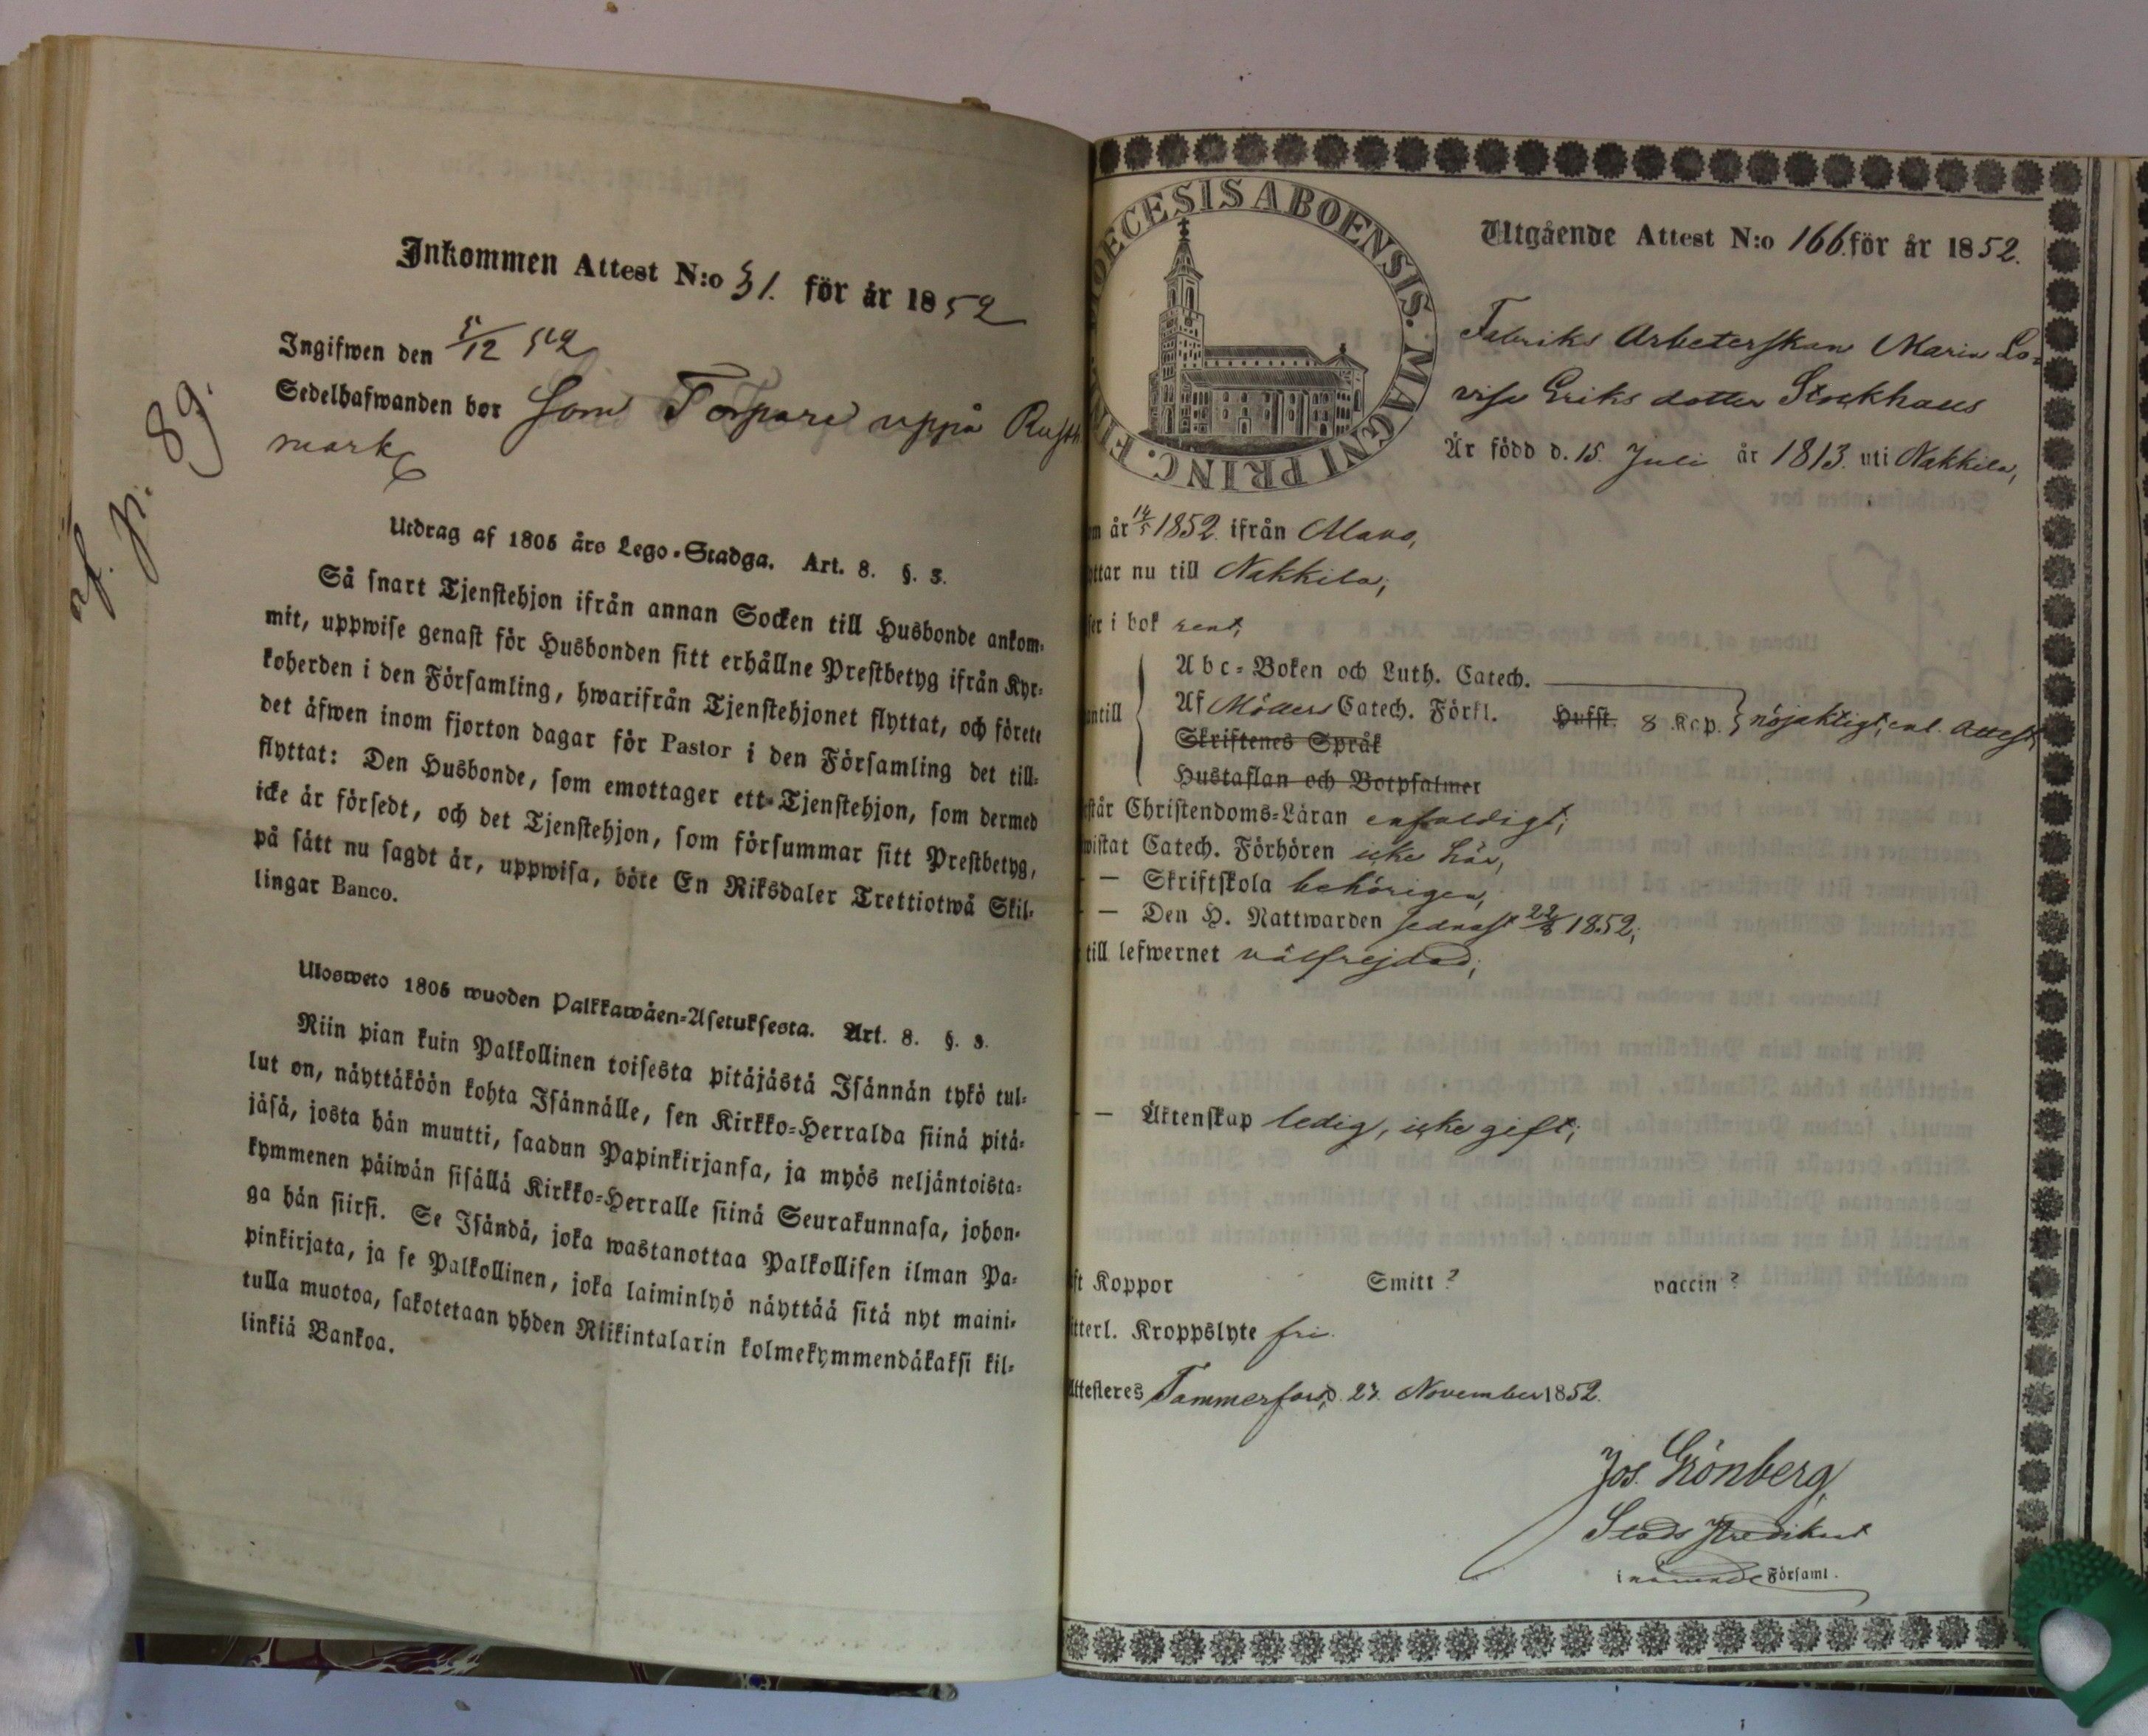 Inkommen Attest N:o 31. för år 1852
Ingifwen den 5/12 52
Sedelhafwanden bor som Torpare uppå Rusth
mark
af. p. 89.
Utdrag af 1805 års Lego-Stadga. Art. 8. §. 3.
Så snart Tjenstehjon ifrån annan Socken till Husbonde ankom-
mit, uppwise genast för Husbonden sitt erhållne Prestbetyg ifrån Kyr-
koherden i den Församling, hwarifrån Tjenstehjonet flyttat, och förete
det äfwen inom fjorton dagar för Pastor i den Församling det till-
flyttat: Den Husbonde, som emottager ett Tjenstehjon, som dermed
icke är försedt, och det Tjenstehjon, som försummar sitt Prestbetyg,
på sätt nu sagdt är, uppwisa, böte En Riksdaler Trettiotwå Skil-
lingar Banco.
Ulosweto 1805 wuoden Palkkawäen-Asetuksesta. Art. 8. §. 3.
Niin pian kuin Palkollinen toisesta pitäjästä Isännän tykö tul-
lut on, näyttäköön kohta Isännälle, sen Kirkko-Herralda siinä pitä-
jäsä, josta hän muutti, saadun Papinkirjansa, ja myös neljäntoista-
kymmenen päiwän sisällä Kirkko-Herralle siinä Seurakunnasa, johon-
ga hän siirsi. Se Isändä, joka wastanottaa Palkollisen ilman Pa-
pinkirjata, ja se Palkollinen, joka laiminlyö näyttää sitä nyt maini-
tulla muotoa, sakotetaan yhden Riikintalarin kolmekymmendäkaksi kil-
linkiä Bankoa.
OECESIS ABOENSIS. MAGNI PRINC. FIN
Utgående Attest N:o 166. för år 1852.
Fabriks Arbeterskan Maria Lo-
visa Eriks dotter Stockhaus
Är född d. 15. Juli år 1813. uti Nakkila,
m år 14/5 1852. ifrån
ttar nu till Nakkila;
ser i bok rent;
Abc-Boken och Luth. Catech.
antill Af Möllers Catech. Förkl. Husst. 8 Kap. nöjaktigt, enl. Attest
Skriftenes Språk
Hustaflan och Botpsalmer
står Christendoms-Läran enfaldigt;
wistat Catech. Förhören icke här,
— Skriftskola behörigen,
— Den H. Nattwarden sednast 22/8 1852;
till lefwernet välfrejdad;
— Äktenskap ledig, icke gift;
ft Koppor Smitt? vaccin?
tterl. Kroppslyte fri.
Attesteres Tammerfors, d. 27. November 1852.
Jos. Grönberg,
Stads Predikant
i nämnde Församl.